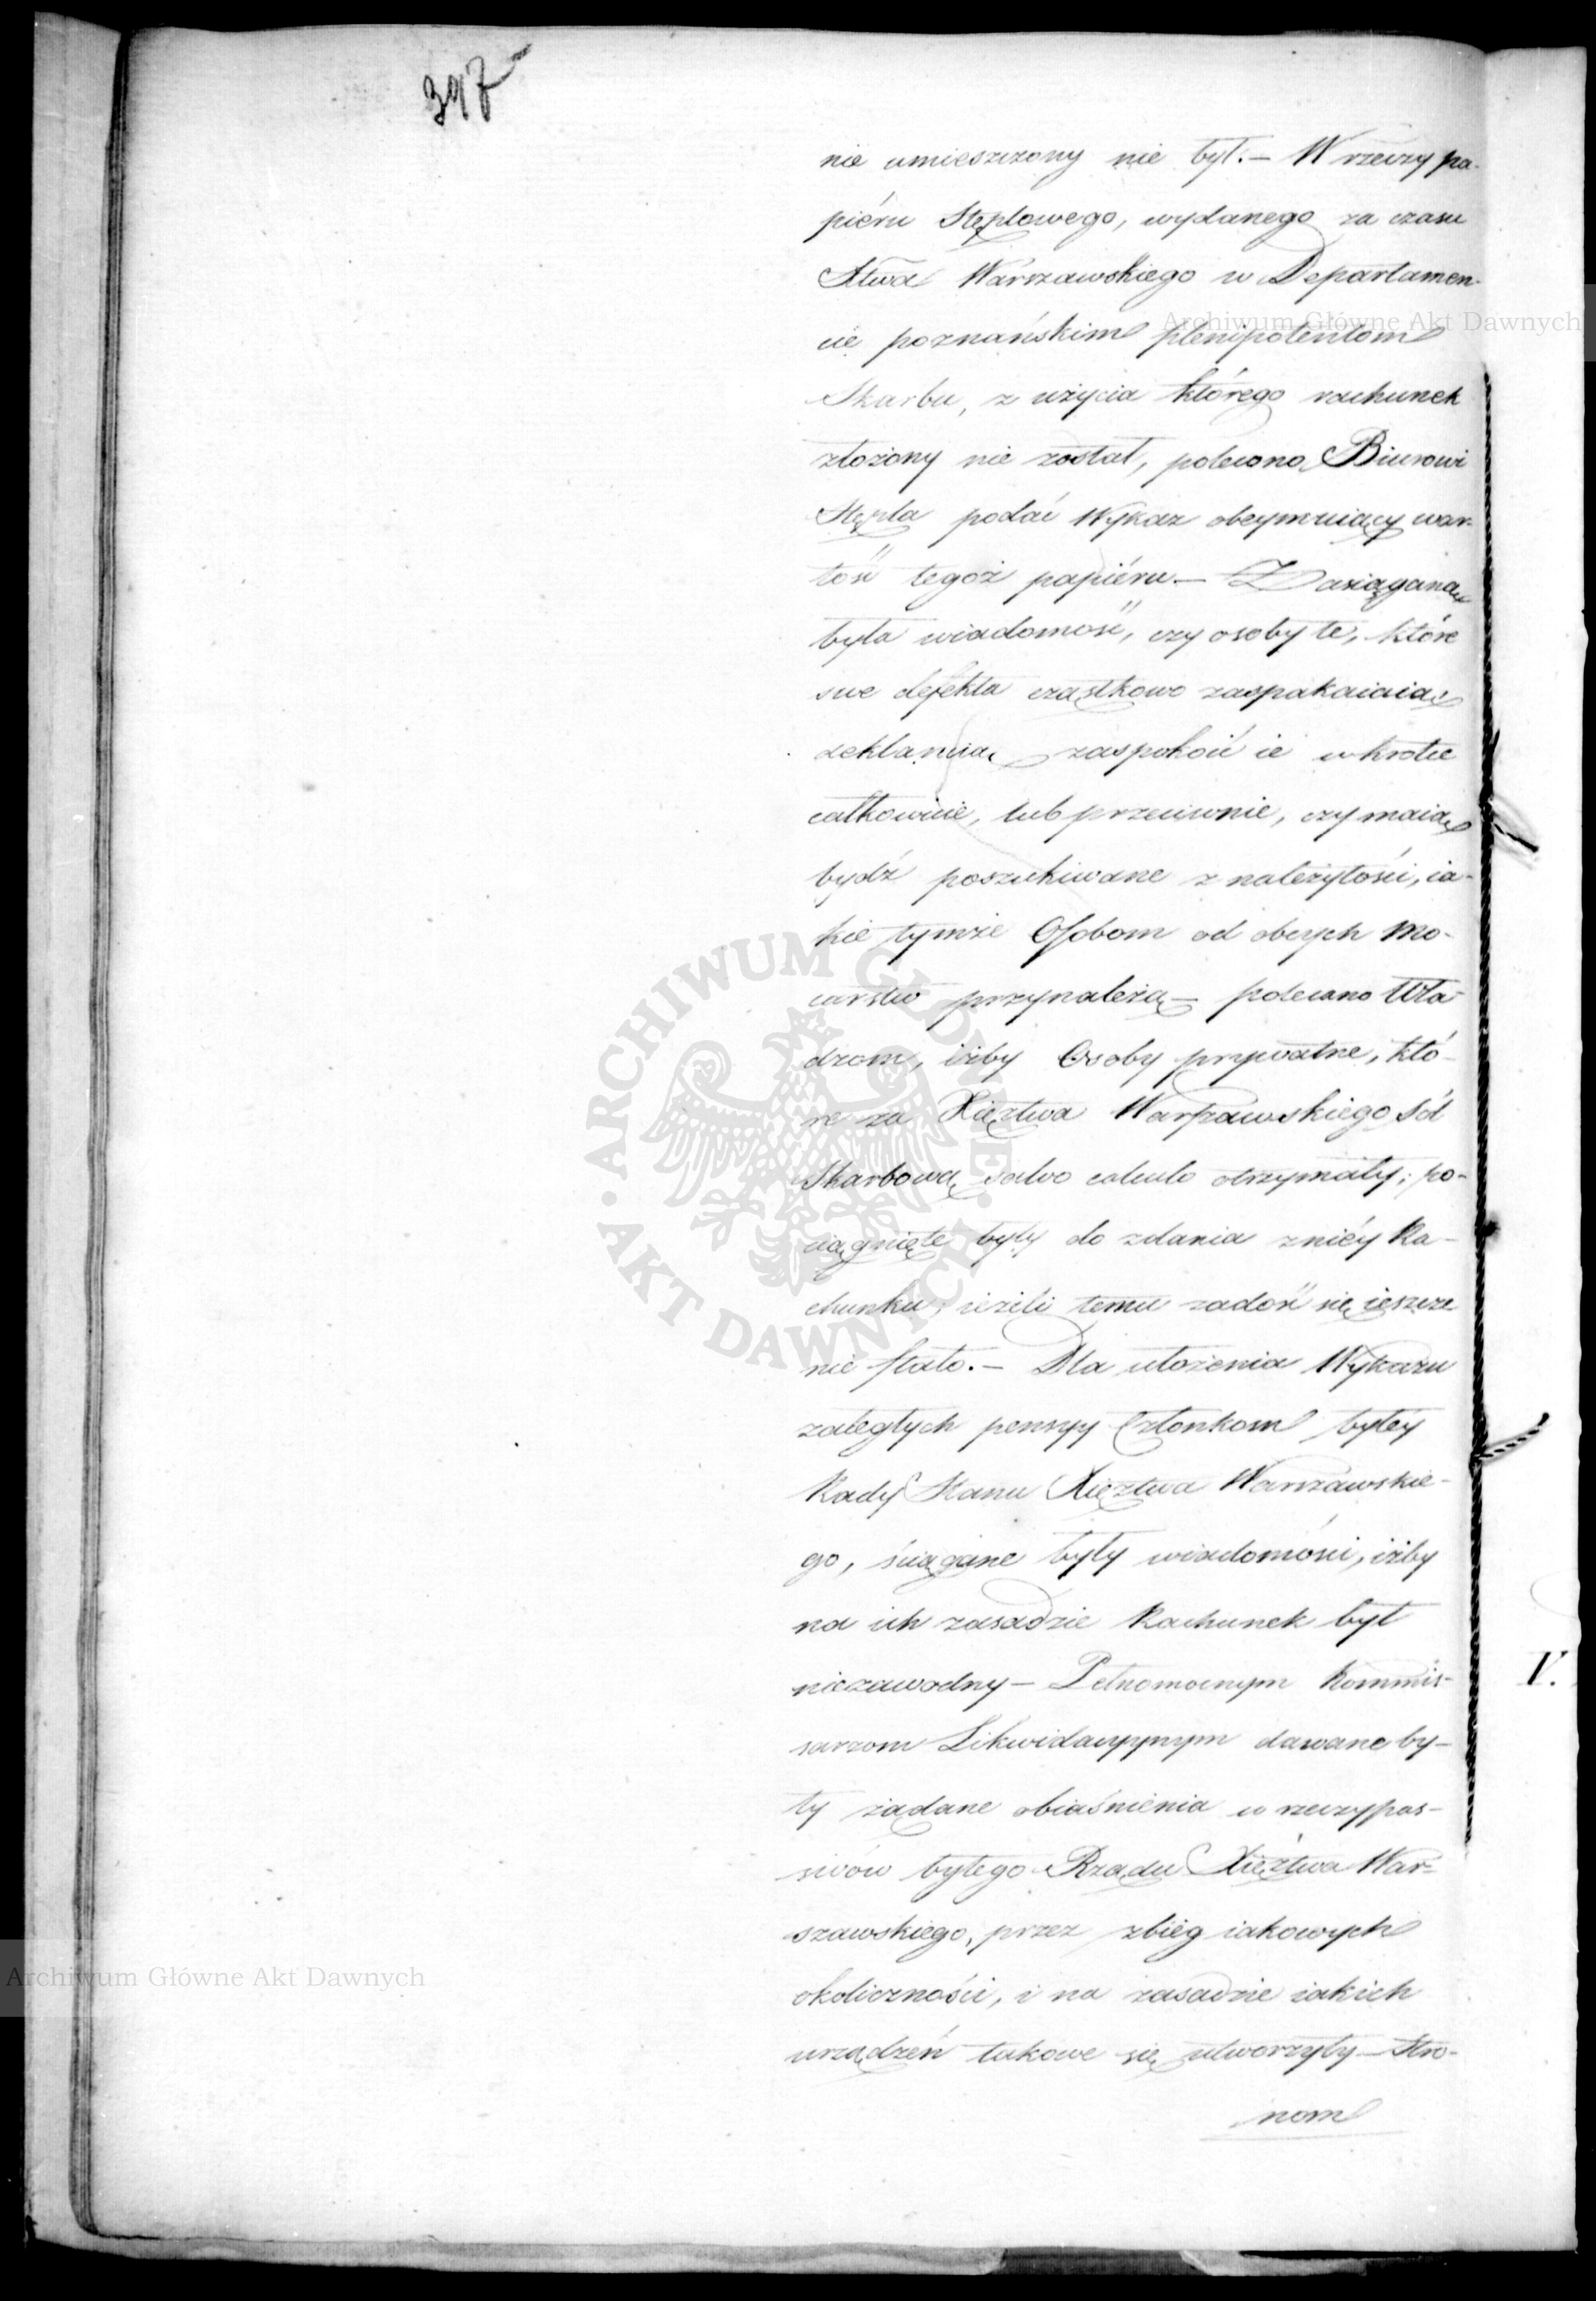 397
nie umieszczony nie był. – W rzeczy pa-
piéru Stęplowego, wydanego za czasu
Xtwa Warszawskiego w Departamen-
cie poznańskim plenipotentom
Skarbu, z użycia którego rachunek
złożony nie został, polecono Biurowi
Stępla podać Wykaz obeymuiący war-
tość tegoż papiéru – Zasiągana
była wiadomość, czy osoby te, które
swe defekta cząstkowo zaspakaiaią
deklaruią zaspokoić ie wkrotce
całkowicie, lub przeciwnie, czy maią
bydź poszukiwane z należytości, ia-
kie tymże Osobom od obcych Mo-
carstw przynależą – polecano Wła-
dzom, iżby Osoby prywatne, któ-
re za Xięztwa Warszawskiego Sól
Skarbową salvo calculo otrzymały, po-
ciągnięte były do zdania z niéy Ra-
chunku, ieżeli temu zadość się ieszcze
nie stało. – Dla ułożenia Wykazu
zaległych pensyy Członkom byłey
Rady Stanu Xięztwa Warszawskie-
go, ściągane były wiadomości, iżby
na ich zasadzie Rachunek był
niezawodny – Pełnomocnym Kommis-
sarzom Likwidacyynym dawane by-
ły żądane obiaśnienia w rzeczy pas-
siwów byłego Rządu Xięztwa War-
szawskiego, przez zbieg iakowych
okoliczności, i na zasadzie iakich
urządzeń takowe się utworzyły – Stro-
nom
V.
Archiwum Główne Akt Dawnych
Archiwum Główne Akt Dawnych
ARCHIWUM GŁÓWNE AKT DAWNYCH